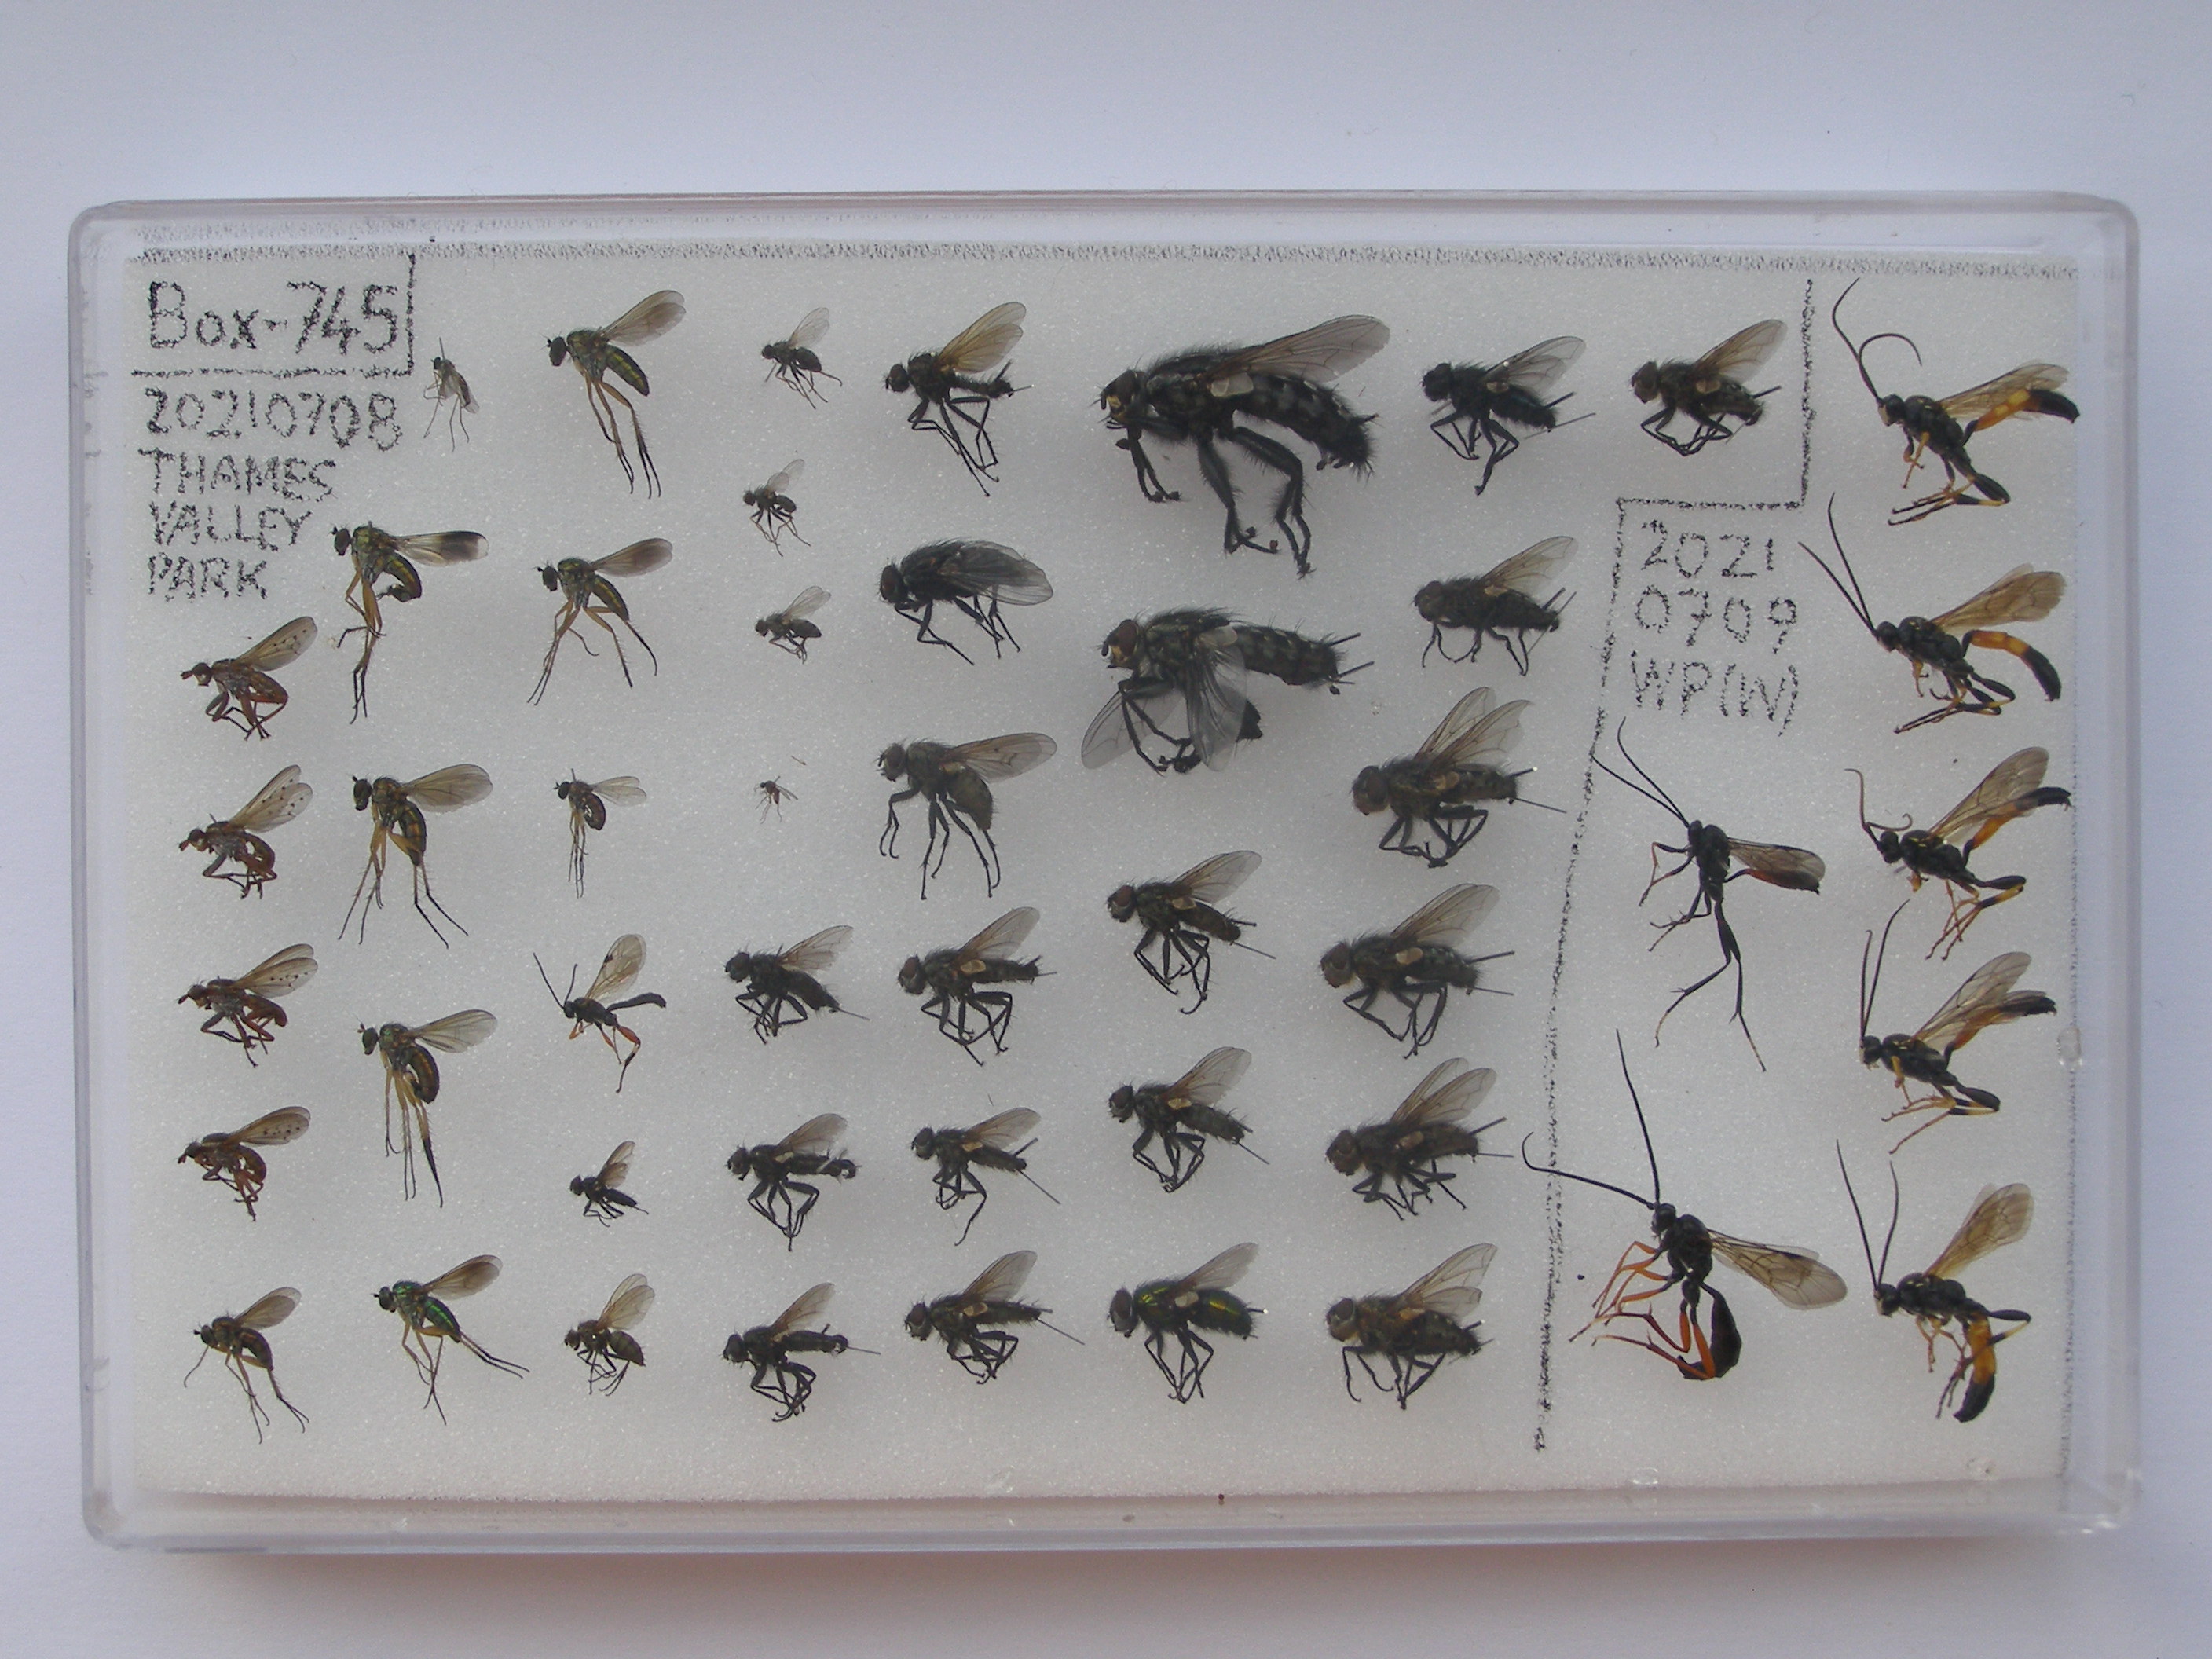 Box-745
20210708
THAMES
VALLEY
PARK
2021
0709
WP(W)